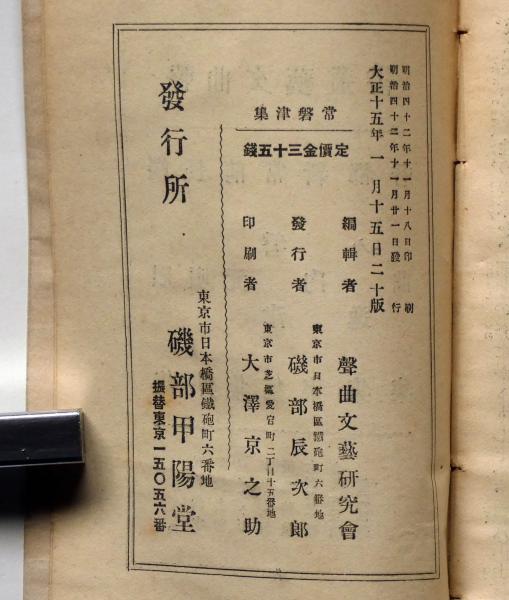 明治四十二年十一月十八日印刷
明治四十二年十一月廿一日發行
大正十五年一月十五日二十版
常磐津集
定價金三十五錢
編輯者 聲曲文藝研究會
東京市日本橋區鐵砲町六番地
發行者 磯部辰次郎
東京市芝區愛宕町二丁目十五番地
印刷者 大澤京之助
發行所
東京市日本橋區鐵砲町六番地
磯部甲陽堂
振替東京一五〇五六番